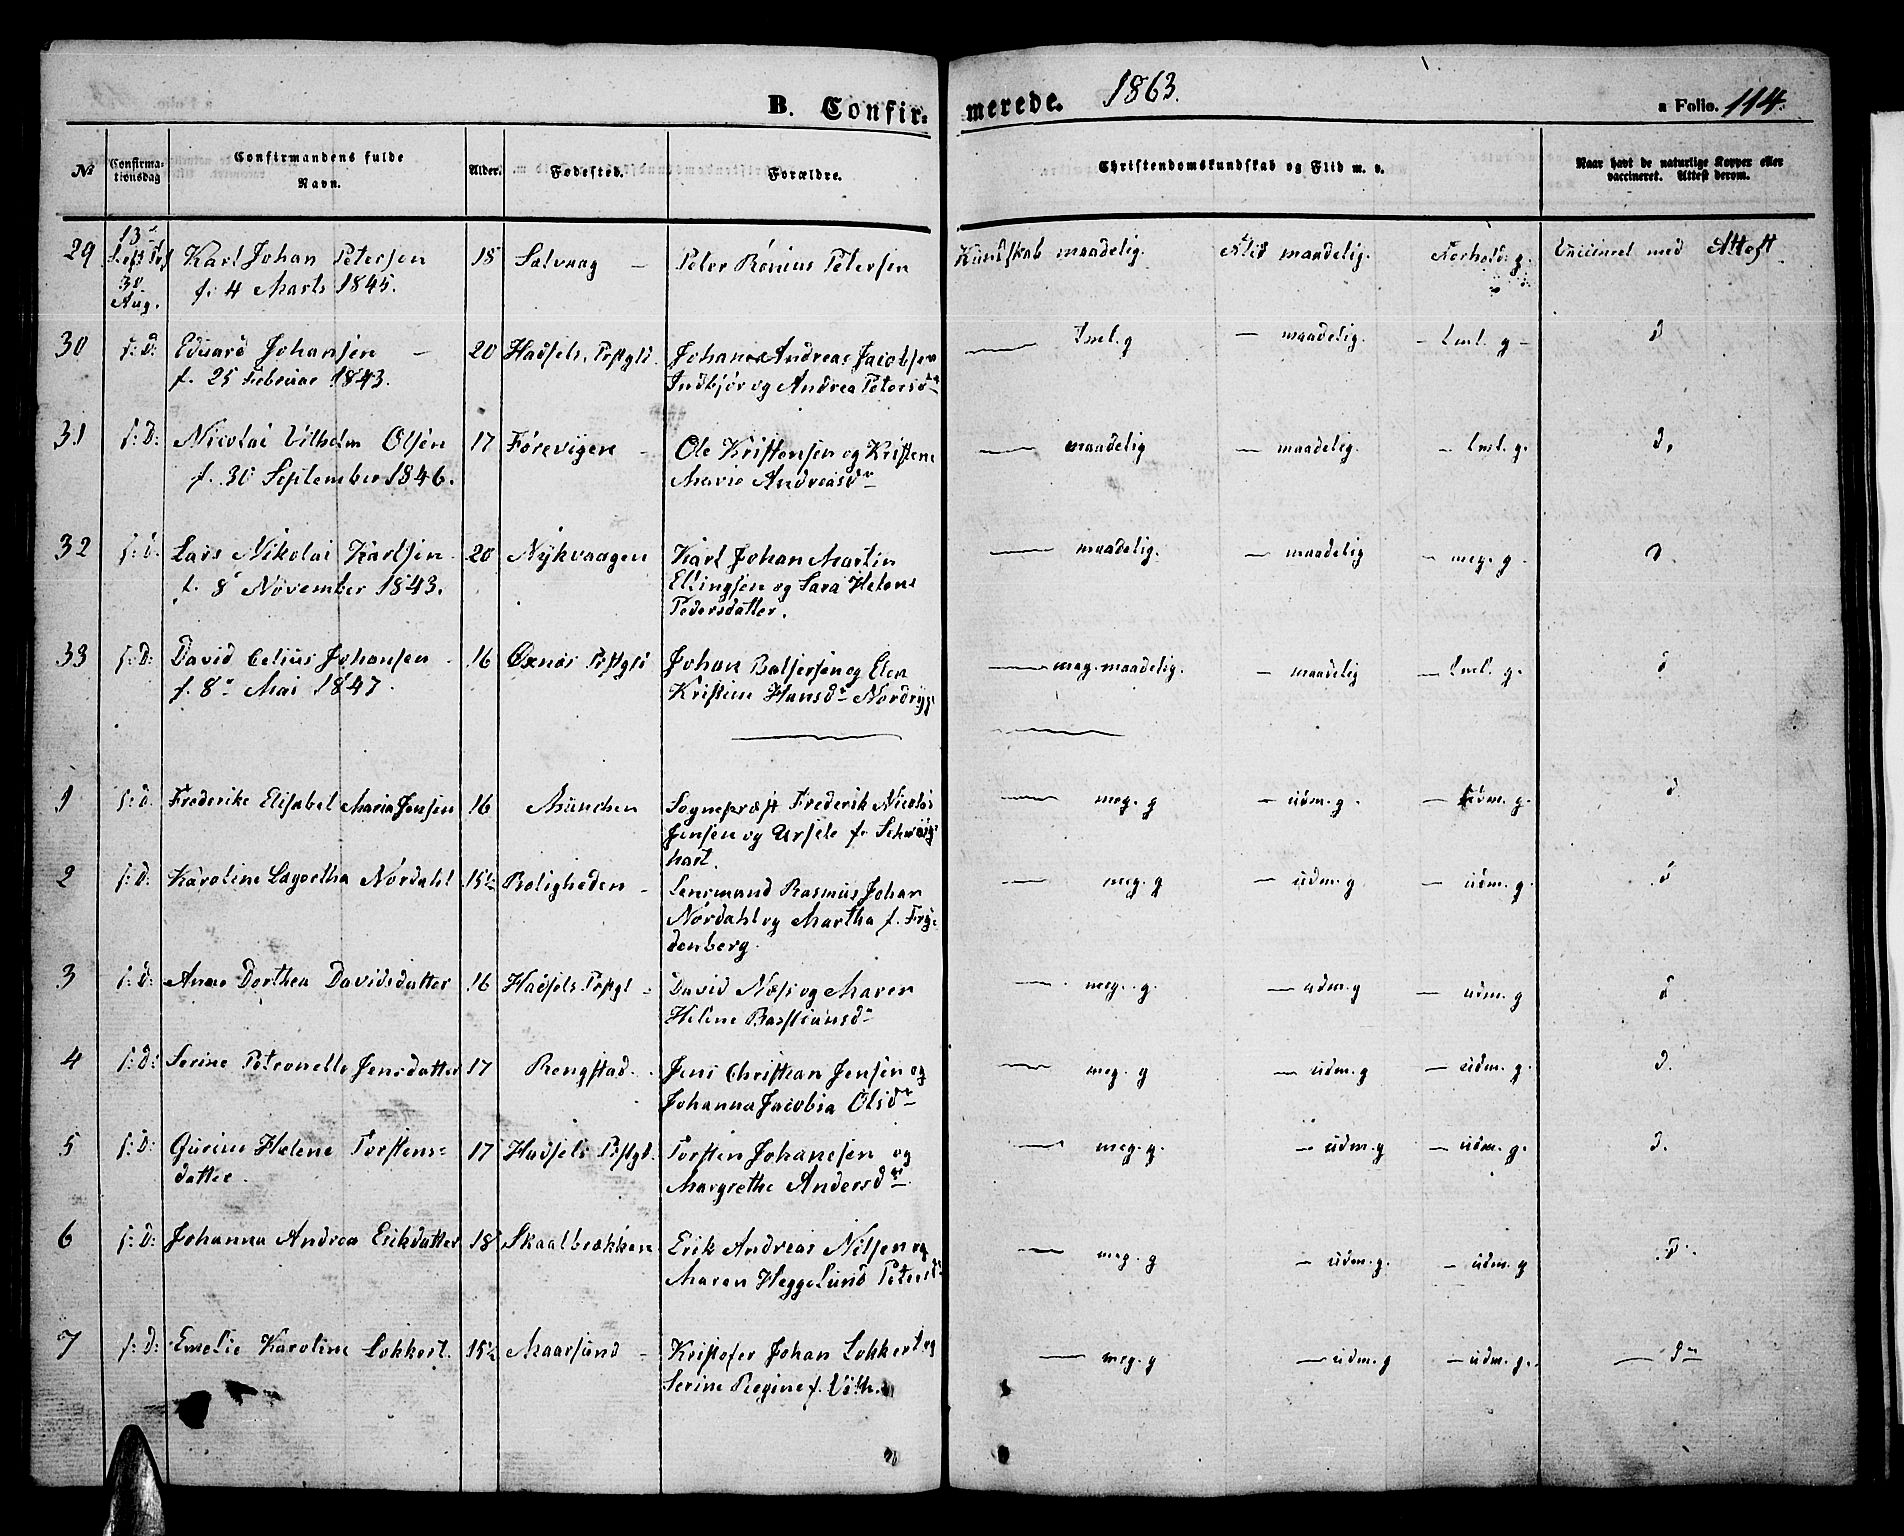 B. Confirmerede. 1863. a Folio. 114.
№ Confirmationsdag Confirmandens fulde Navn. Alder. Fødested. Forældre. Christendomskundskab og Flid m. v. Naar havt de naturlige Kopper eller vaccineret. Attest derom.
29 13 S. 30 Aug. Karl Johan Petersen 18 Salvaag – Peter Rønius Petersen Kundskab maadelig. Flid maadelig. Forhold: g. Vaccineret med Attest
f: 4 Marts 1845.
30 f: D: Eduard Johansen – 20 Hadsels Præstgld. Johan Andreas Jacobsen — Tml. g – maadelig. – Tml. g – d
f. 25 Februar 1843. Indbjør og Andrea Petersdr
31 f: D: Nicolai Vilhelm Olsen 17 Førevigen – Ole Kristensen og Kristene — maadelig – maadelig. – Tml. g. d.
f. 30 September 1846. Marie Andreasdr
32 f: D. Lars Nikolai Karlsen 20 Nykvaagen Karl Johan Martin — maadelig. – maadelig – meg. g. d.
f. 8 November 1843. Ellingsen og Sara Helene
Pedersdatter.
33 f: D: David Celius Johansen 16 Øxnæs Præstgld Johan Baltsersen og Elen — meg. maadelig. – maadelig – Tml. g. d
f. 8 Mai 1847. Kristine Hansdr Nordryg
1 f: D. Frederike Elisabet Maria Jensen 16 München Sognepræst Frederik Nicolas — meg. g – udm. g. – udm. g. d.
Jensen og Ursele f. Schweig-
hart.
2 f: D: Karoline Lagertha Nordahl 15½ Roligheden – Lensmand Rasmus Johan — meg. g – udm. g – udm. g. d
Nordahl og Martha f. Fry-
denberg.
3 f: D: Anne Dorthea Davidsdatter 16 Hadsels Præstgl – David Næss og Maren — meg. g. – udm. g – udm. g d
Helene Bastiansdr
4 f: D: Serine Petronelle Jensdatter 17 Rengstad. Jens Christian Jensen og — meg. g – udm. g – udm. g. d.
Johanna Jacobia Olsdr
5 f: D: Gurine Helene Torstens- 17 Hadsels Præstgl. Torsten Johanesen og — meg. g. – udm. g – udm. g. d.
datter. Margrethe Andersdr
6 f: D: Johanna Andrea Erikdatter 18 Skaalbrækken Erik Andreas Nilsen og — meg. g – udm. g. – udm. g D.
Maren Heggelund Petersdr
7 f: D: Emelie Karoline Lokkert. 15½ Maarsund – Kristofer Johan Lokkert og — meg. g – udm. g – udm. g. — do
Serine Regine f. Voth.